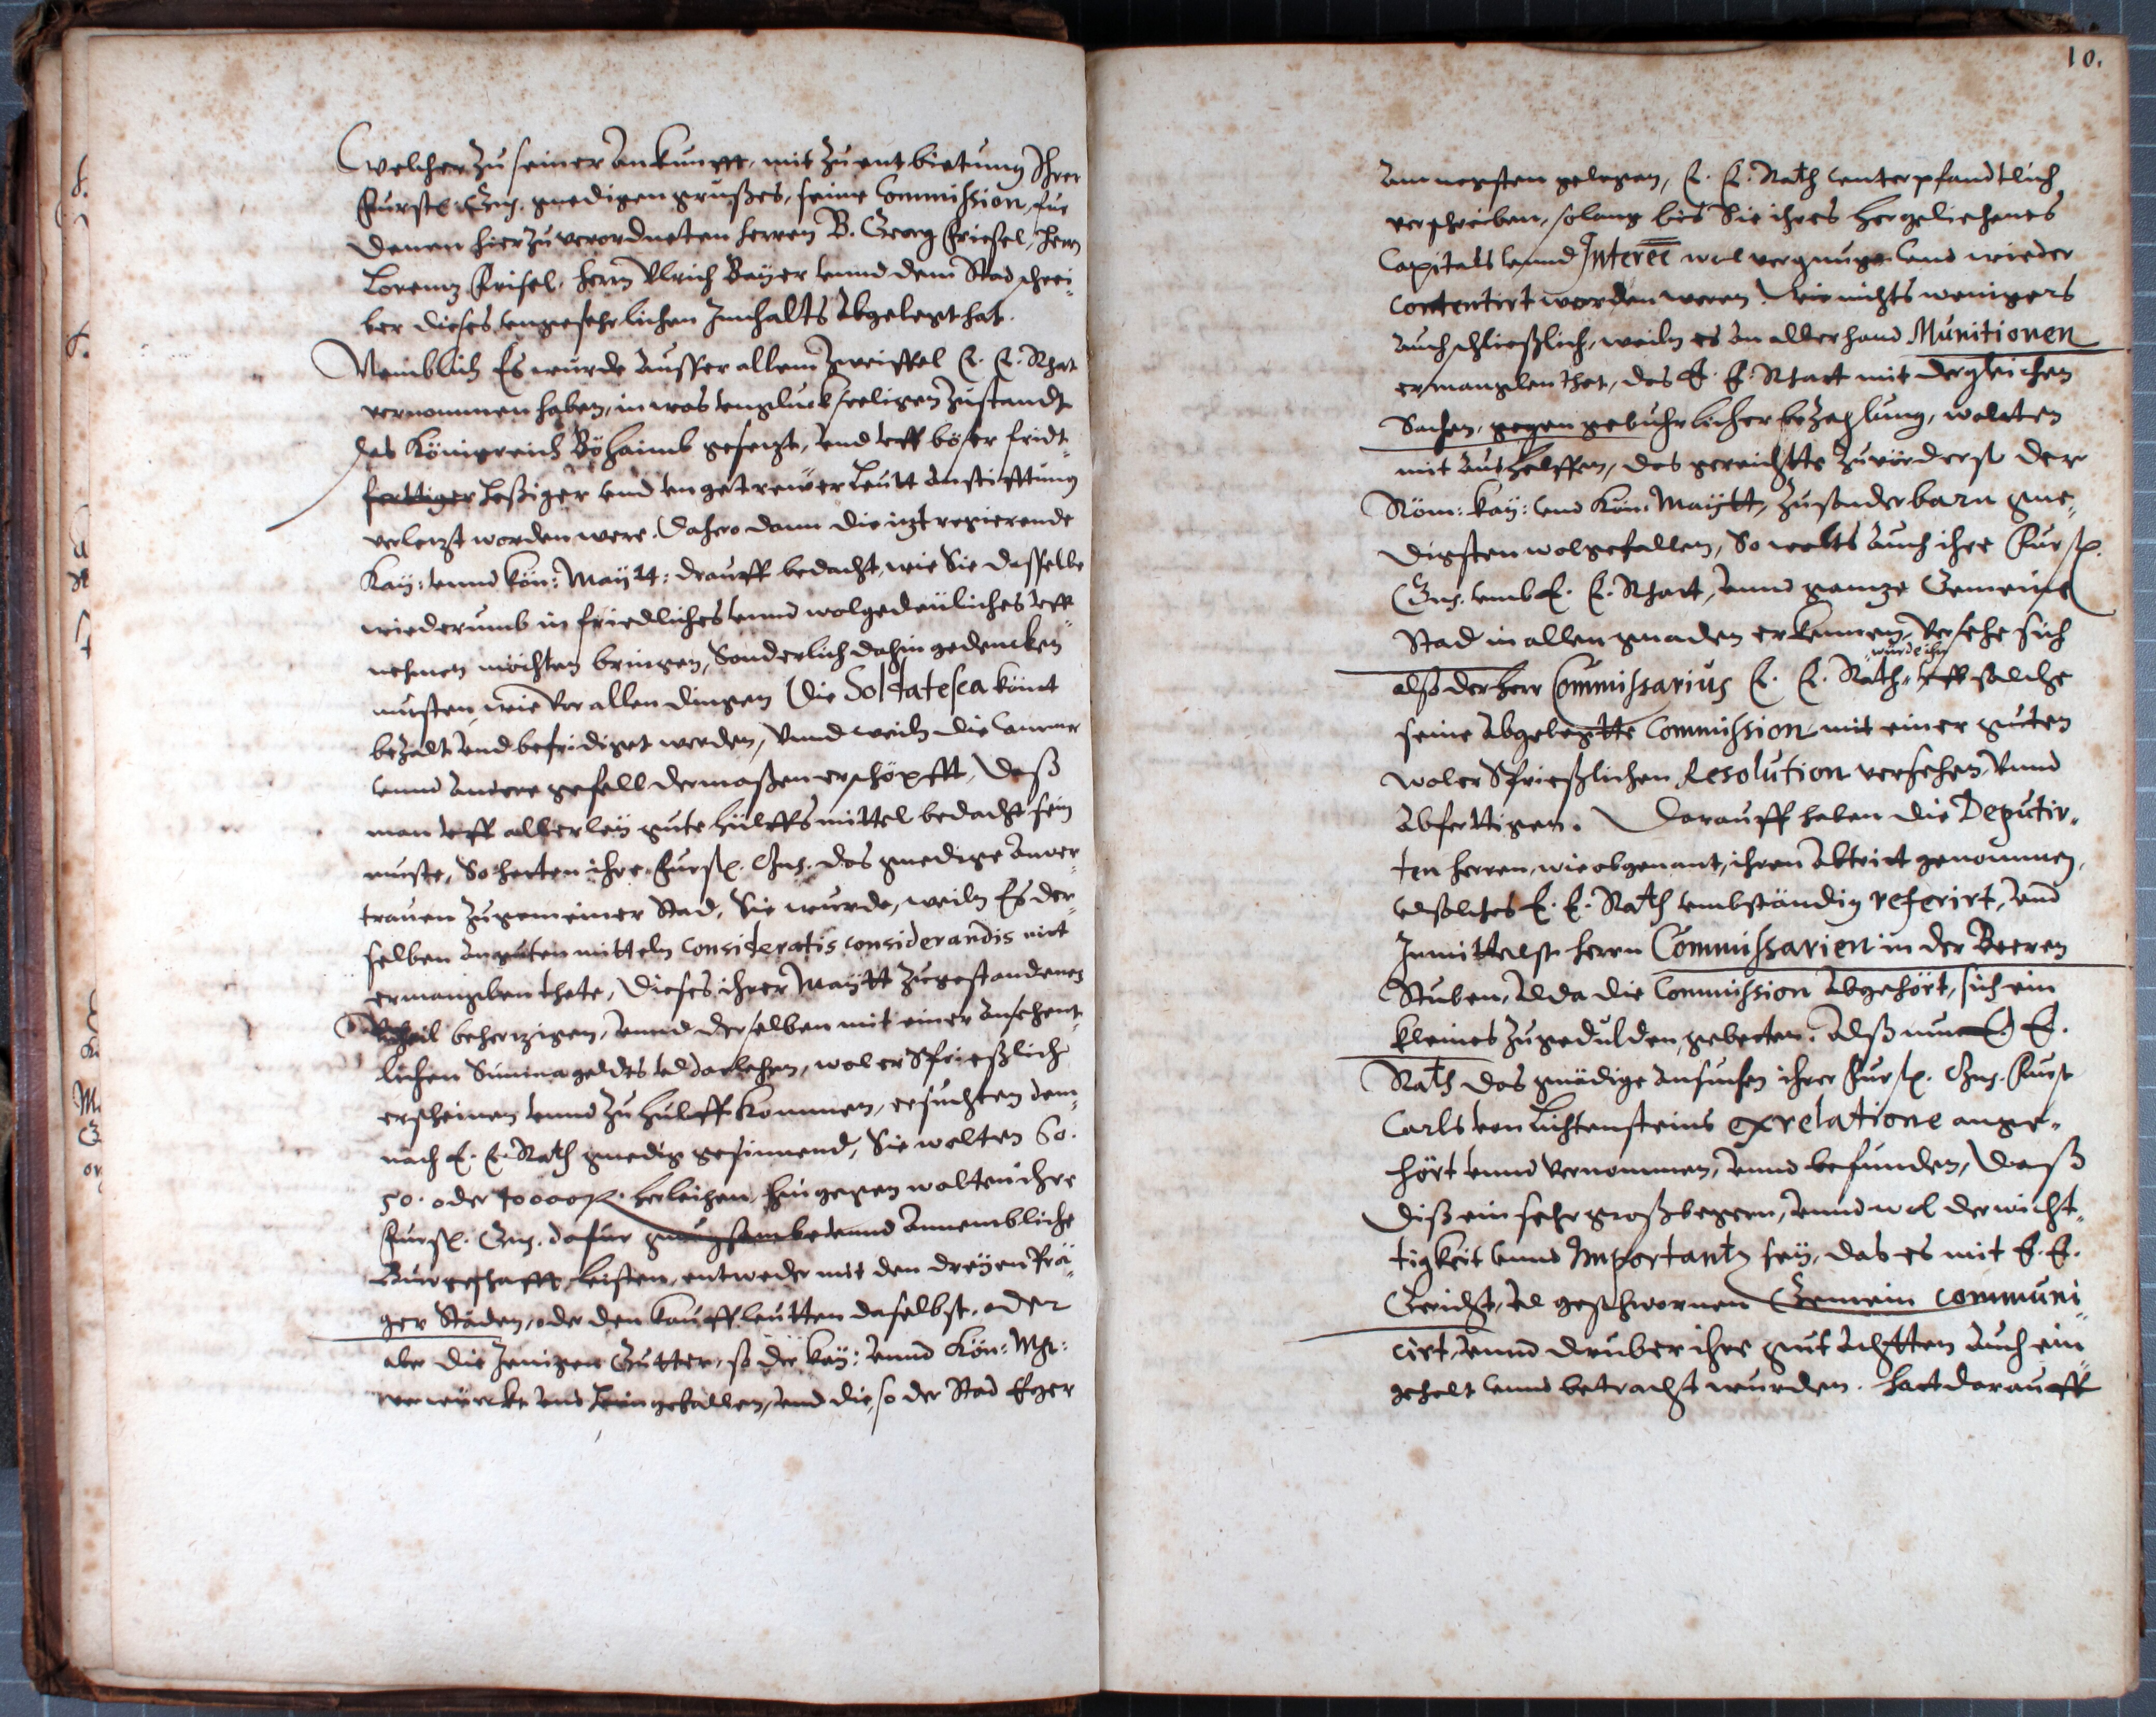 Welcher zu seiner Ankunfft, mit zuentbietung Ihrer
Fürstl: Gn: gnedigen grußes, seine Commission, für
denen hierzu verordneten herren B. Georg Friesel, herrn
Lorentz Frisel, herrn Ulrich Bayer vnnd dem Stadschrei¬
ber dieses vngefehrlichen Innhalts Abgelegt hat.
Nemblich Es würde ausser allem Zweiffel E. E. Rhat
vernommen haben, in was vnglückseeligen Zustandt
das Königreich Böhaimb gesetzt, vnd vff böser fridt¬
heßiger vnd vngetrewer Leutt Anstifftung
verletzt worden were. Dahero dann die itzt regierende
Kay: vnnd Kön: Maytt: drauff bedacht, wie Sie dasselbe
wiederumb in friedliches vnnd wolgedeuliches vff¬
nehmen möchten bringen, Sonderlich dahin gedencken
müsten, wie vor allen dingen die Soldatesca könt
bezalt vnd befridiget werden, Vnnd weiln die Cammer
vnnd andere gefell dermaßen erschöpfft, daß
man vff allerley gute hülffsmittel bedacht sein
müste, So hetten ihre Fürstl. Gn. das gnedige Anver¬
trauen zu gemeiner Stad, Sie würde, weiln Es der¬
selben an guten mitteln consideratis considerandis nit
ermanglen thete, dieses ihrer Maytt zugestandenes
Vnheil behertzigen, vnnd derselben mit einer ansehent¬
lichen Summa geldes vl darlehen, wol ersprießlich
erscheinen vnnd zu hülff kommen, ersuchten dem¬
nach E. E. Rath gnedig gesinnend, Sie wolten 60.
50. oder 40000 fl. herleihen, hingegen wolten ihre
Fürstl. Gn. dafür gnugsambe vnnd Annembliche
Bürgschafft leisten, entweder mit den dreyen Prä¬
ger Städen, oder den kauffleutten daselbst, oder
aber die Jenigen Gutter, so der Kay: vnnd Kön: Mt:
verwürckt vnd heimgefallen, vnd die, so der Stad Eger
10.
Am negsten gelegen, E. E. Rath vnterpfandtlich
verschreiben, solang bis Sie ihres hergeliehenes
Capitals vnnd Interée wol vergnugt vnd wieder
contentirt worden weren. Wie nichts wenigers
Auch schließlich, weiln es an allerhand Munitionen
ermanglen thet, das E. E. Rhatt mit dergleichen
Sachen, gegen gebuhrlicher bezahlung, wolten
mit aushelffen, das gereichtte zuvörderst der
Röm: Kay: vnd Kön: Maytt, zusonderbarn gne¬
digsten wolgefallen, So wolts auch ihre Fürstl.
Gn. vmb E. E. Rhatt, vnnd gantze Gemeine
Stad in allen gnaden erkennen, Versehe sich
also der herr Commissarius E. E. Rath würde ihn vff solche
seine Abgelegtte Commission mit einer guten
wolersprießlichen Resolution versehen Vnnd
Abferttigen. Darauff haben die Deputir¬
ten herren, wie obgenant, ihren Abtritt genommen,
solches E. E. Rath vmbständig referirt, vnd
Inmittelst herrn Commissarien in der Beeren
Stuben, Alda die Commission Abgehört, sich ein
kleines zugedulden, gebetten. Alß nun E. E.
Rath das gnädige ansuchen ihrer Fürstl. Gn. Fürst
Carls von Lichtensteins ex relatione ange¬
hört vnnd vernommen, vnnd befunden, daß
diß ein sehr groß begern, vnnd wol der wicht¬
tigkeit vnnd Importantz sey, das es mit E. E.
Gericht, vl geschwornen Gemein communi¬
cirt, vnnd drüber ihre gut Achtten auch ein
geholt vnnd betracht würden. Hatt darauff